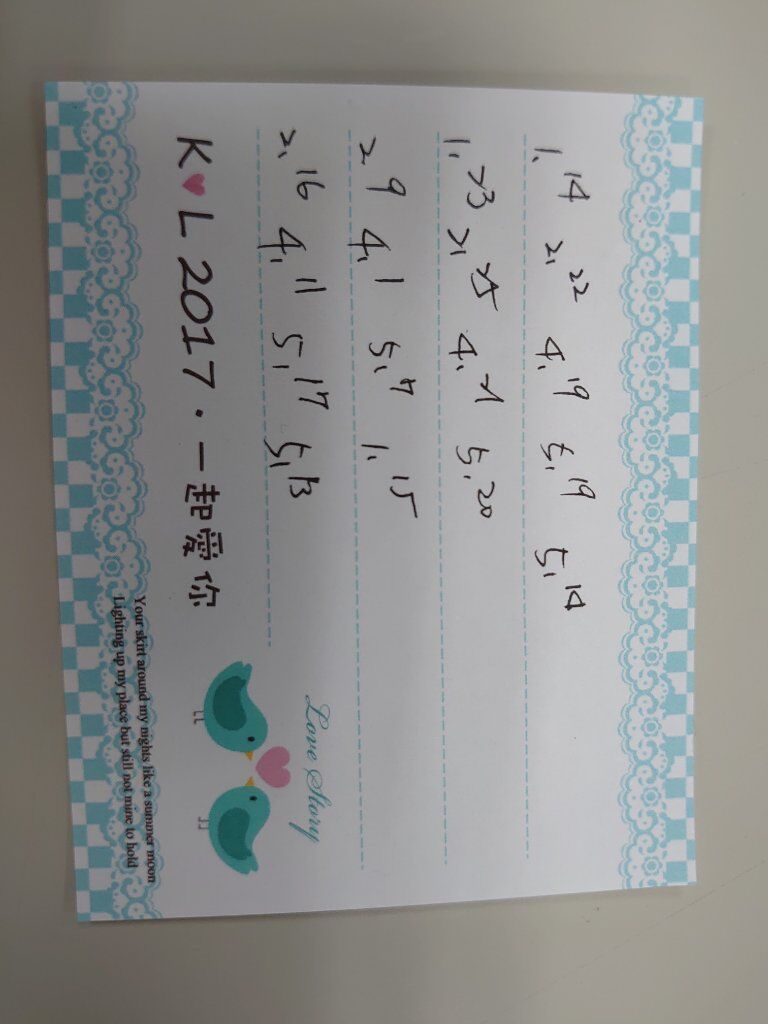 1, 14 2, 22 4, 19 5, 19 5, 14
1, 23 2, 25 4, 21 5, 20
2, 9 4, 1 5, 7 1, 15
2, 16 4, 11 5, 17 5, 13
Love Story
K♥L 2017·一起愛你
Your skirt around my nights like a summer moon
Lighting up my place but still not mine to hold